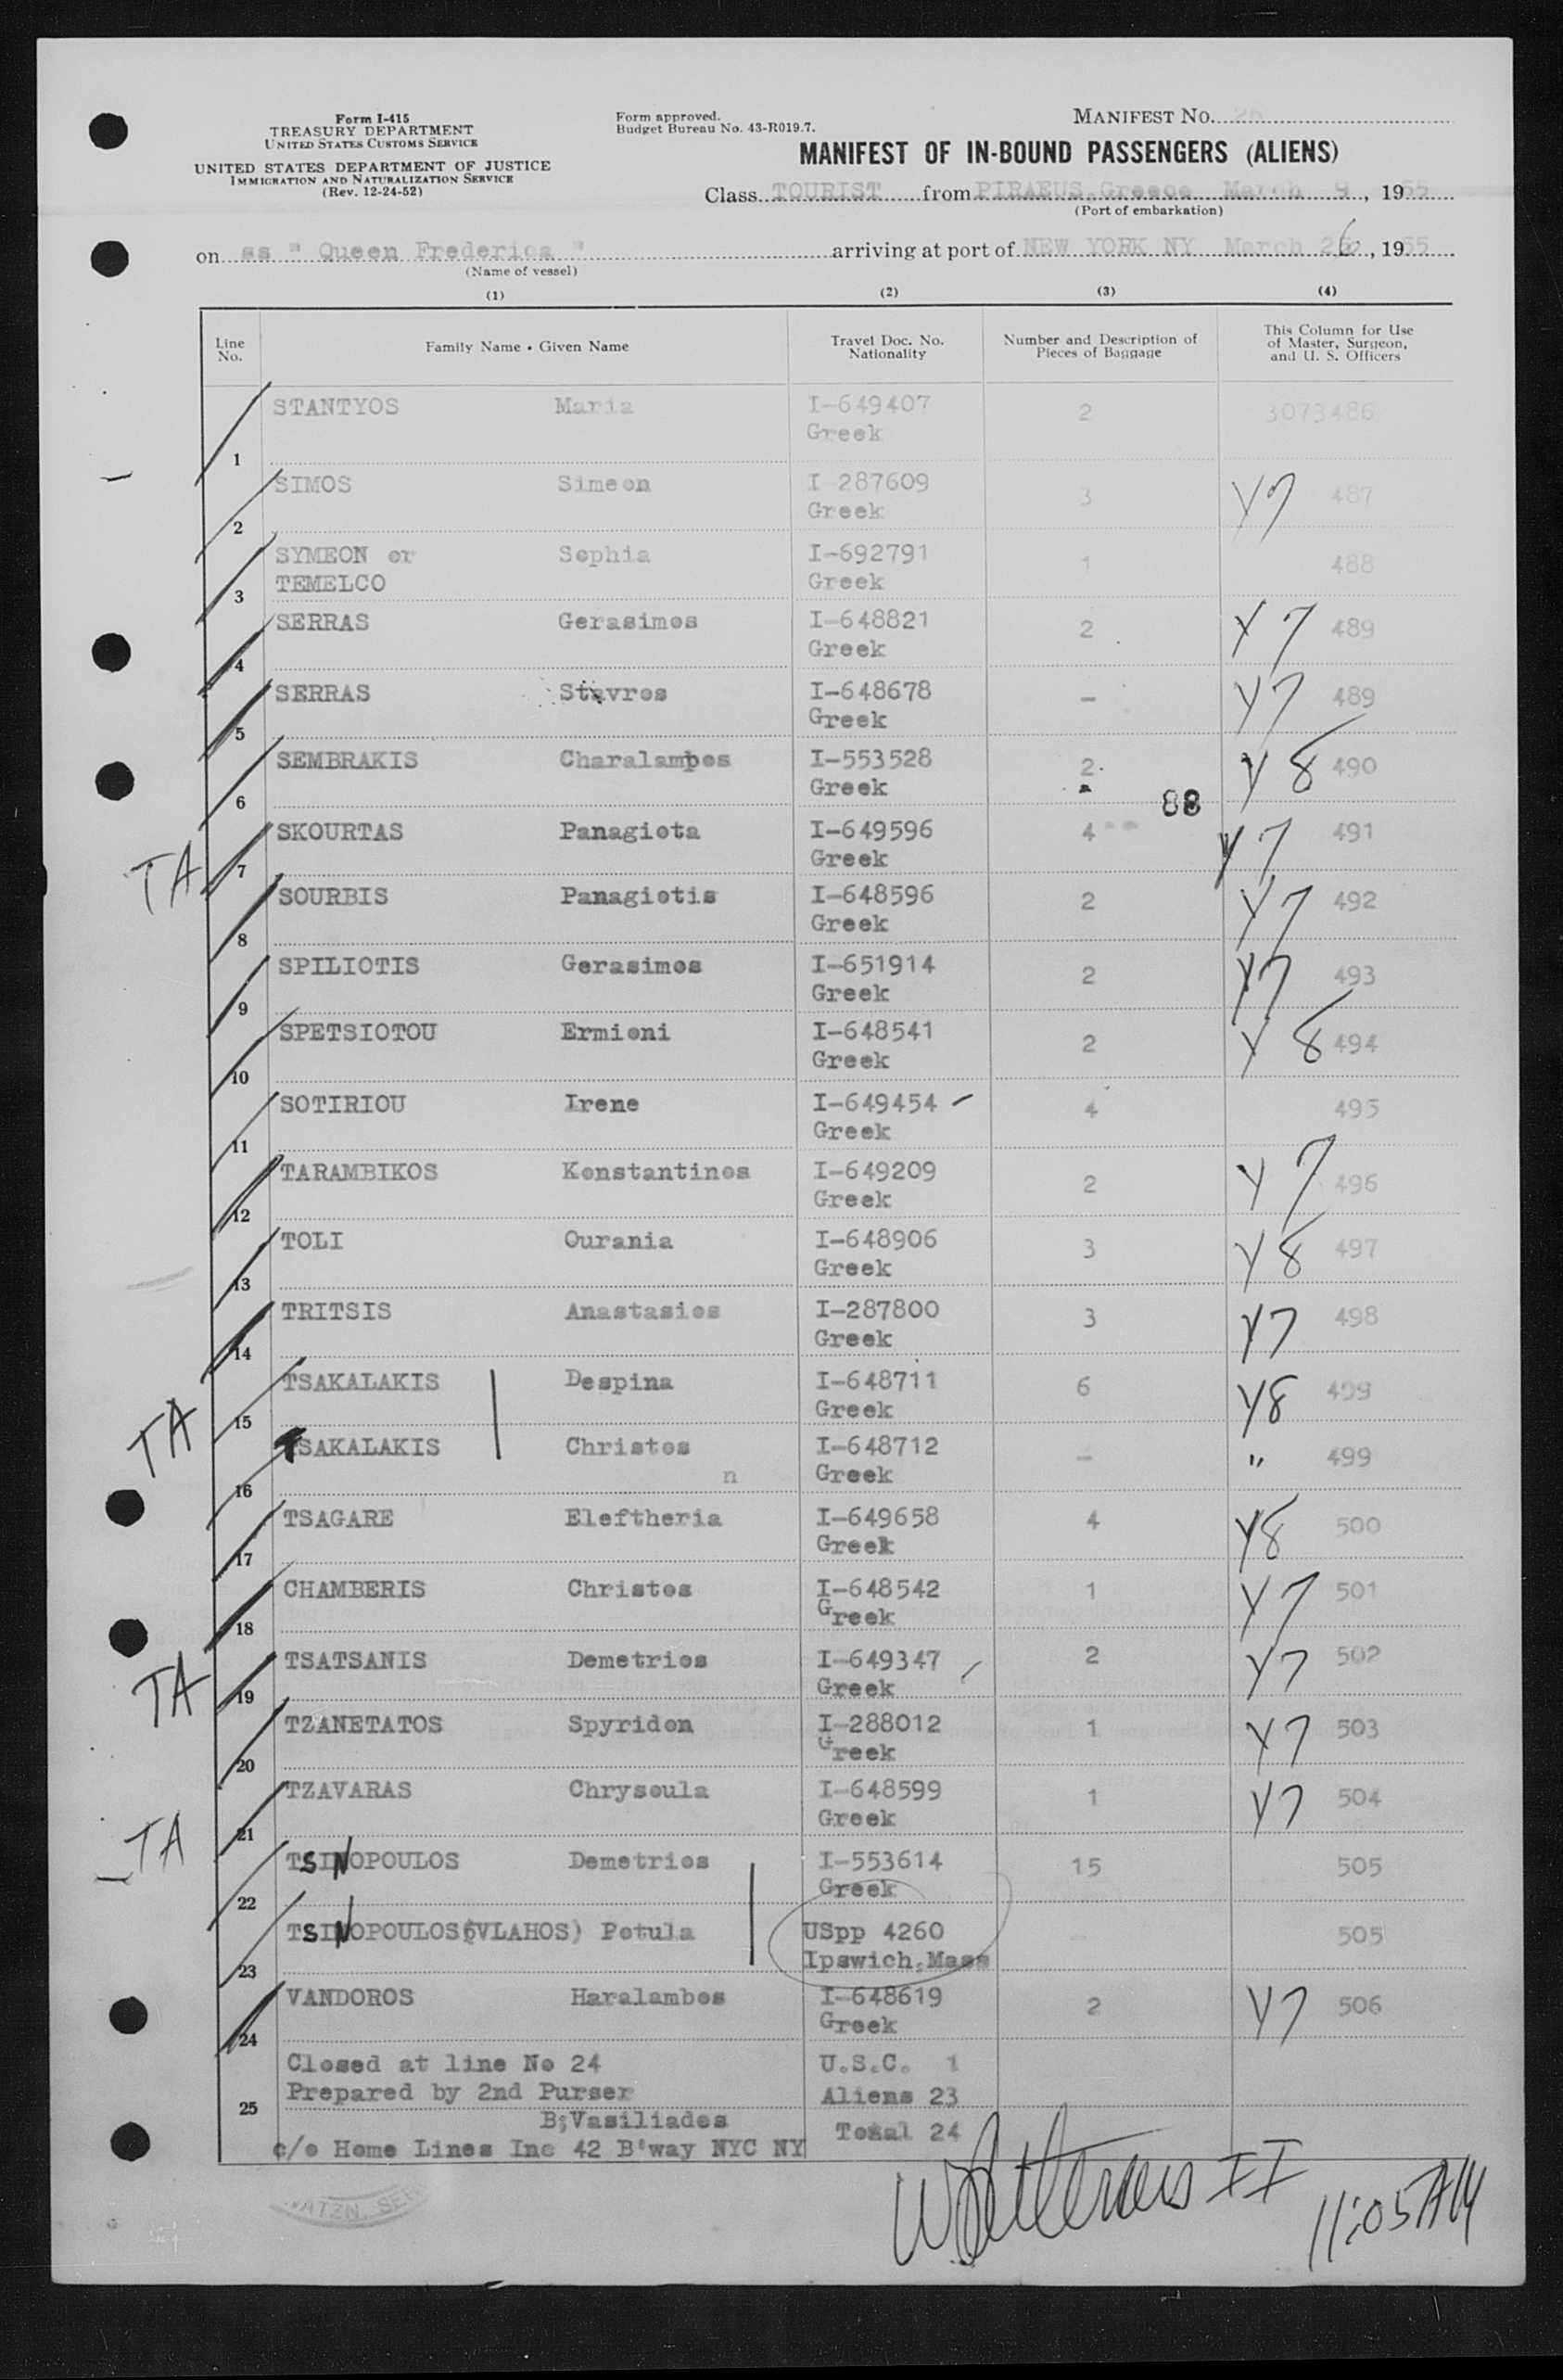 Form I-415
TREASURY DEPARTMENT
UNITED STATES CUSTOMS SERVICE
UNITED STATES DEPARTMENT OF JUSTICE
IMMIGRATION AND NATURALIZATION SERVICE
(Rev. 12-24-52)
Form approved.
Budget Bureau No. 43-R019.7.
MANIFEST NO.
MANIFEST OF IN-BOUND PASSENGERS (ALIENS)
Class TOURIST from PIRAEUS, Greece March 9, 1955
(Port of embarkation)
on ss " Queen Frederica " arriving at port of NEW YORK NY March 26, 1955
(Name of vessel)
(1) (2) (3) (4)
Line No. Family Name • Given Name Travel Doc. No. Nationality Number and Description of Pieces of Baggage This Column for Use of Master, Surgeon, and U. S. Officers
1 STANTYOS Maria I-649407 2 3073486
Greek
2 SIMOS Simeon I 287609 3 Y7 487
Greek
3 SYMEON or Sophia I-692791 1 488
TEMELCO Greek
4 SERRAS Gerasimos I-648821 2 Y7 489
Greek
5 SERRAS Stavros I-648678 - Y7 489
Greek
6 SEMBRAKIS Charalampos I-553528 2 Y8 490
Greek
88
TA 7 SKOURTAS Panagiota I-649596 4 Y7 491
Greek
8 SOURBIS Panagiotis I-648596 2 Y7 492
Greek
9 SPILIOTIS Gerasimos I-651914 2 Y7 493
Greek
10 SPETSIOTOU Ermioni I-648541 2 Y8 494
Greek
11 SOTIRIOU Irene I-649454 4 495
Greek
12 TARAMBIKOS Konstantinos I-649209 2 Y7 496
Greek
13 TOLI Ourania I-648906 3 Y8 497
Greek
14 TRITSIS Anastasios I-287800 3 Y7 498
Greek
TA 15 TSAKALAKIS Despina I-648711 6 Y8 499
Greek
16 TSAKALAKIS Christos I-648712 - " 499
n Greek
17 TSAGARE Eleftheria I-649658 4 Y8 500
Greek
18 CHAMBERIS Christos I-648542 1 Y7 501
Greek
TA 19 TSATSANIS Demetrios I-649347 2 Y7 502
Greek
20 TZANETATOS Spyridon I-288012 1 Y7 503
Greek
21 TZAVARAS Chrysoula I-648599 1 Y7 504
Greek
TA 22 TSINOPOULOS Demetrios I-553614 15 505
Greek
23 TSINOPOULOS(VLAHOS) Potula USpp 4260 - 505
Ipswich,Mass
24 VANDOROS Haralambos I-648619 2 Y7 506
Greek
25 Closed at line No 24 U.S.C. 1
Prepared by 2nd Purser Aliens 23
B;Vasiliades Total 24
c/o Home Lines Inc 42 B'way NYC NY
II
11:05 AM